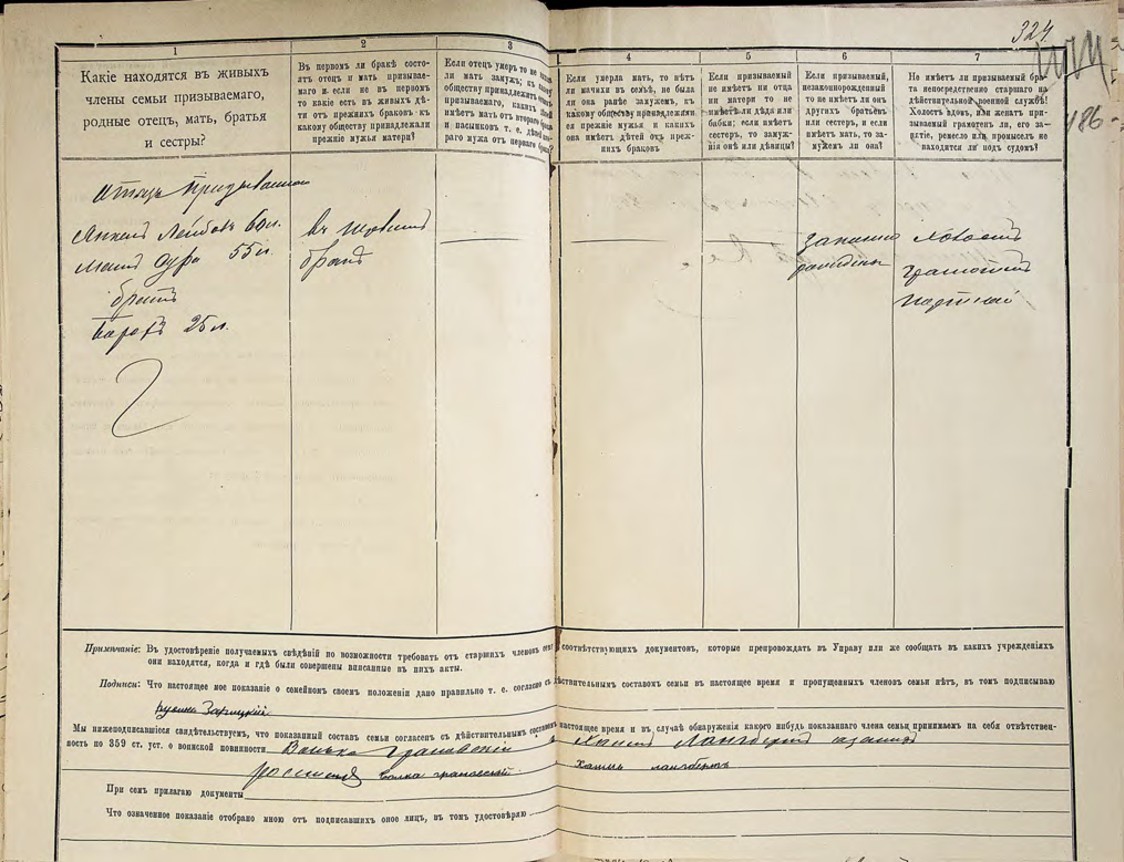 324
486
1
2
3
4
5
6
7
Какіе находятся въ живыхъ
члены семьи призываемаго,
родные отецъ, мать, братья
и сестры?
Въ первомъ ли бракѣ состо-
ятъ отецъ и мать призывае-
маго и если не въ первомъ
то какіе есть въ живыхъ дѣ-
ти отъ прежнихъ браковъ къ
какому обществу принадлежали
прежніе мужья матери?
Если отецъ умеръ то не
ли мать замужъ; къ какому
обществу принадлежитъ
призываемаго, какихъ
имѣетъ мать отъ второго брака
и пасынковъ т. е. дѣтей
раго мужа отъ перваго брака?
Если умерла мать, то нѣтъ
ли мачихи въ семьѣ, не была
ли она ранѣе замужемъ, къ
какому обществу принадлежали
ея прежніе мужья и какихъ
она имѣетъ дѣтей отъ преж-
нихъ браковъ
Если призываемый
не имѣетъ ни отца
ни матери то не
имѣетъ ли дѣда или
бабки; если имѣетъ
сестеръ, то замуж-
нія онѣ или дѣвицы?
Если призываемый,
незаконнорожденный
то не имѣетъ ли онъ
другихъ братьевъ
или сестеръ, и если
имѣетъ мать, то за-
мужемъ ли она?
Не имѣетъ ли призываемый бра-
та непосредственно старшаго на
дѣйствительной военной службѣ!
Холостъ вдовъ, или женатъ при-
зываемый грамотенъ ли, его за-
нятіе, ремесло или промыселъ не
находится ли подъ судомъ?
Отецъ призываемаго
Янкель Лейбовъ 60 л.
мать Сура 55 л.
братъ
25 л.
въ первомъ
бракѣ
Холостъ
грамотенъ
портной
Примѣчаніе: Въ удостовѣреніе получаемыхъ свѣдѣній по возможности требовать отъ старшихъ членовъ семьи соотвѣтствующихъ документовъ, которые препровождать въ Управу или же сообщать въ какихъ учрежденіяхъ
они находятся, когда и гдѣ были совершены вписанные въ нихъ акты.
Подписи: Что настоящее мое показаніе о семейномъ своемъ положеніи дано правильно т. е. согласно съ дѣйствительнымъ составомъ семьи въ настоящее время и пропущенныхъ членовъ семьи нѣтъ, въ томъ подписываю
Зарицкій
Мы нижеподписавшіеся свидѣтельствуемъ, что показанный составъ семьи согласенъ съ дѣйствительнымъ составомъ настоящее время и въ случаѣ обнаруженія какого нибудь показаннаго члена семьи принимаемъ на себя отвѣтствен-
ность по 359 ст. уст. о воинской повинности Волько Грановскій
волка грановскій Хаимъ лангбертъ
При семъ прилагаю документы
Что означенное показаніе отобрано мною отъ подписавшихъ оное лицъ, въ томъ удостовѣряю